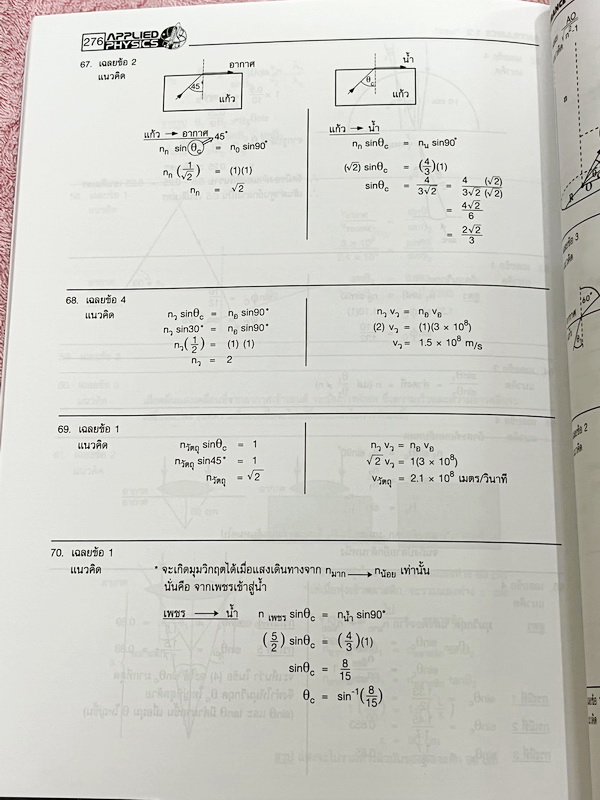 276 APPLIED PHYSICS
67. เฉลยข้อ 2
แนวคิด
อากาศ
45°
แก้ว
แก้ว → อากาศ
45°
nก sinθc = n0 sin90°
nก (1/√2) = (1)(1)
nก = √2
น้ำ
θc
แก้ว
แก้ว → น้ำ
nก sinθc = nน sin90°
(√2) sinθc = (4/3)(1)
sinθc = 4/3√2 = 4/3√2 (√2)/(√2)
= 4√2/6
= 2√2/3
68. เฉลยข้อ 4
แนวคิด
nว sinθc = nอ sin90°
nว sin30° = nอ sin90°
nว(1/2) = (1) (1)
nว = 2
nว vว = nอ vอ
(2) vว = (1)(3 × 10⁸)
vว = 1.5 × 10⁸ m/s
69. เฉลยข้อ 1
แนวคิด
nวัตถุ sinθc = 1
nวัตถุ sin45° = 1
nวัตถุ = √2
nว vว = nอ vอ
√2 vว = 1(3 × 10⁸)
vวัตถุ = 2.1 × 10⁸ เมตร/วินาที
70. เฉลยข้อ 1
แนวคิด
* จะเกิดมุมวิกฤตได้เมื่อแสงเดินทางจาก nมาก → nน้อย เท่านั้น
นั่นคือ จากเพชรเข้าสู่น้ำ
เพชร → น้ำ n เพชร sinθc = nน้ำ sin90°
(5/2) sinθc = (4/3)(1)
sinθc = 8/15
θc = sin⁻¹(8/15)